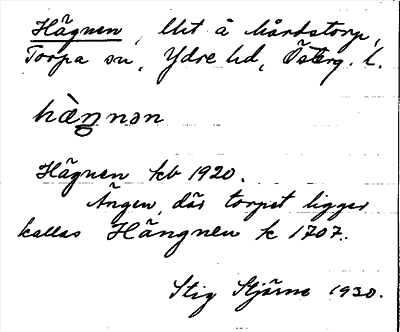 Hägnen, lht å Mårdstorp,
Torpa sn, Ydre hd, Österg. l.
hàŋnən
Hägnen kb 1920.
Ängen, där torpet ligger
kallas Hängnen k 1707.
Stig Stjärne 1930.